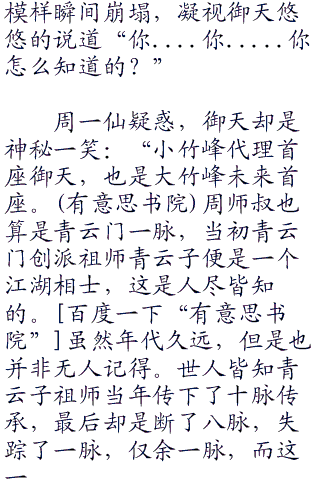 模样瞬间崩塌，凝视御天悠
悠的说道“你....你.....你
怎么知道的？”
周一仙疑惑，御天却是
神秘一笑：“小竹峰代理首
座御天，也是大竹峰未来首
座。(有意思书院)周师叔也
算是青云门一脉，当初青云
门创派祖师青云子便是一个
江湖相士，这是人尽皆知
的。[百度一下“有意思书
院”]虽然年代久远，但是也
并非无人记得。世人皆知青
云子祖师当年传下了十脉传
承，最后却是断了八脉，失
踪了一脉，仅余一脉，而这
一